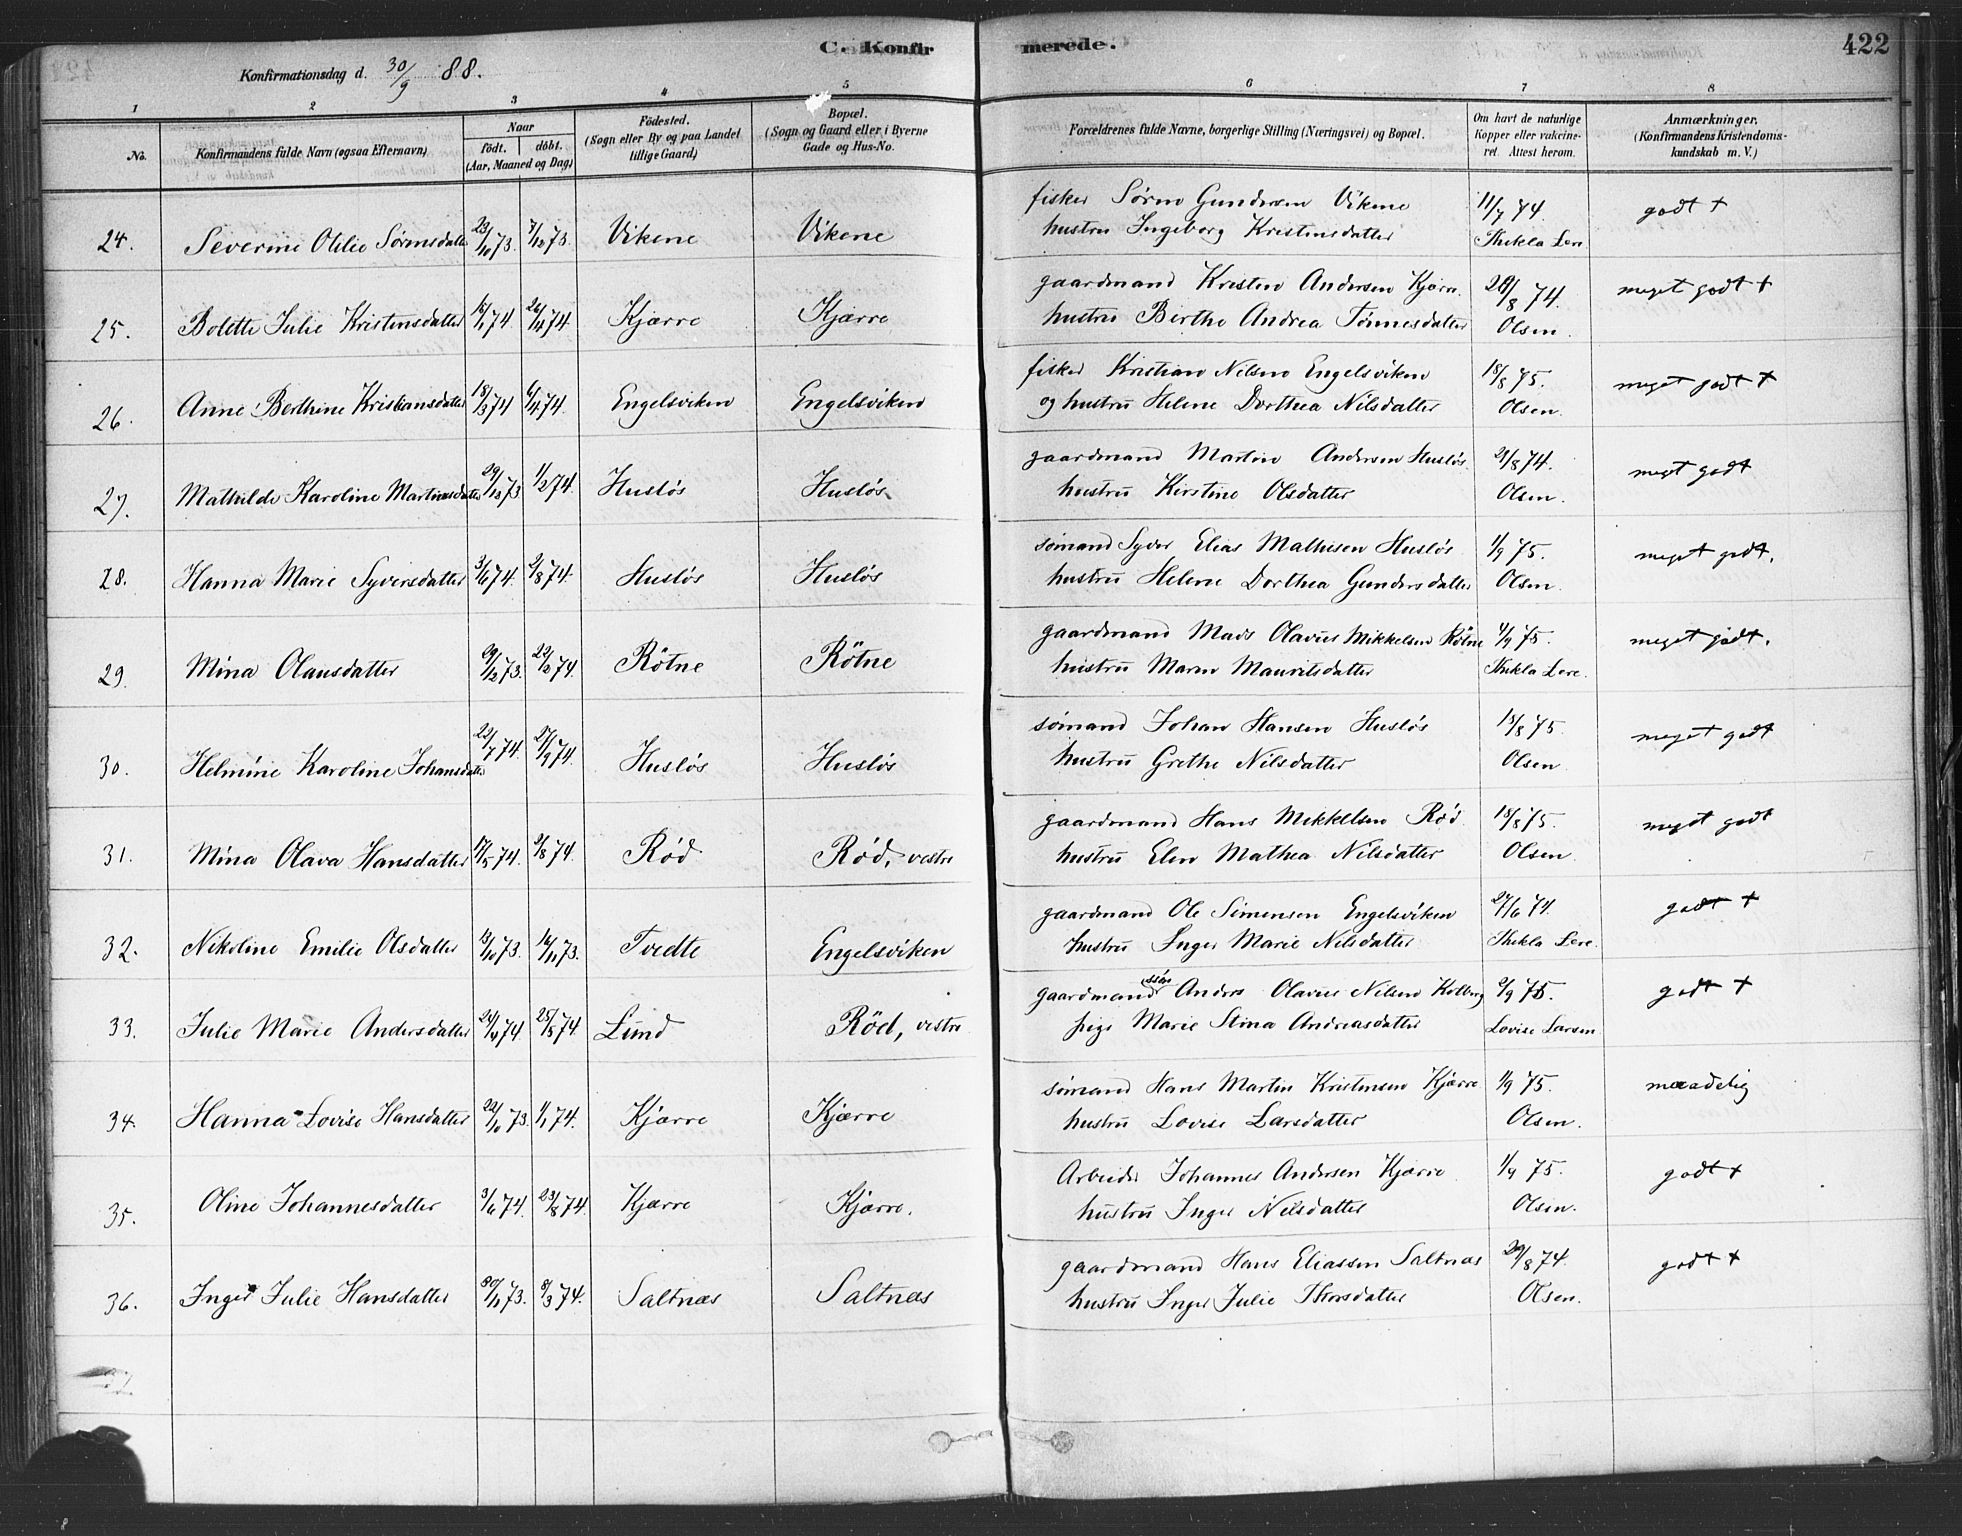 C. Konfirmerede.
422
Konfirmationsdag d. 30/9 88.
1 2 3 4 5 6 7 8
No.
Konfirmandens fulde Navn (ogsaa Efternavn)
Naar
födt. döbt.
(Aar, Maaned og Dag)
Födested.
(Sogn eller By og paa Landet
tillige Gaard)
Bopæl.
(Sogn og Gaard eller i Byerne
Gade og Hus-No.
Forældrenes fulde Navne, borgerlige Stilling (Næringsvei) og Bopæl.
Om havt de naturlige
Kopper eller vakcine-
ret. Attest herom.
Anmærkninger.
(Konfirmandens Kristendoms-
kundskab m. V.)
fisker Søren Gundersen Vikene 11/7 74. godt +
24. Severine Otilie Sørensdatter 23/10 73. 7/12 73. Vikene Vikene hustru Ingeborg Kristensdatter Thekla Lere
gaardmand Kristen Andersen Kjærre 28/8 74. meget godt +
25. Bolette Julie Kristensdatter 16/1 74 26/4 74. Kjærre Kjærre hustru Berthe Andrea Tønnesdatter Olsen.
fisker Kristian Nilsen Engelsviken 18/8 75. meget godt +
26. Anne Berthine Kristiansdatter 18/3 74 6/4 74. Engelsviken Engelsviken og hustru Helene Dorthea Nilsdatter Olsen.
gaardmand Martin Andersen Husløs 21/8 74. meget godt
27. Mathilde Karoline Martinsdatter 29/12 73. 1/2 74. Husløs Husløs hustru Kirstine Olsdatter Olsen.
sømand Syver Elias Mathisen Husløs 1/9 75. meget godt.
28. Hanna Marie Syversdatter 3/6 74. 2/8 74. Husløs Husløs hustru Helene Dorthea Gundersdatter Olsen.
gaardmand Mads Olavus Mikkelsen Røtne 4/9 75. meget godt.
29. Mina Olausdatter 29/12 73. 22/2 74. Røtne Røtne hustru Maren Mauritsdatter Thekla Lere.
sømand Johan Hansen Husløs 13/8 75. meget godt
30. Helmine Karoline Johansdatter 22/7 74. 27/9 74. Husløs Husløs hustru Grethe Nilsdatter Olsen.
gaardmand Hans Mikkelsen Rød 18/8 75. meget godt
31. Mina Olava Hansdatter 17/5 74. 2/8 74. Rød Rød, vestre hustru Elen Mathea Nilsdatter Olsen.
gaardmand Ole Simensen Engelsviken 27/6 74. godt +
32. Nikoline Emilie Olsdatter 13/10 73. 16/11 73. Tvedte Engelsviken hustru Inger Marie Nilsdatter Thekla Lere.
gaardmands søn Anders Olavus Nilsen Kolberg 2/9 75. godt +
33. Julie Marie Andersdatter 24/4 74. 25/5 74. Lund Rød, vestre pige Marie Stina Andreasdatter Lovise Larsen
sømand Hans Martin Kristensen Kjærre 1/9 75. maadelig
34. Hanna Lovise Hansdatter 22/10 73. 1/1 74. Kjærre Kjærre hustru Lovise Larsdatter Olsen.
Arbeider Johannes Andersen Kjærre 1/9 75. godt +
35. Oline Johannesdatter 3/6 74. 23/8 74. Kjærre Kjærre. hustru Inger Nilsdatter Olsen.
gaardmand Hans Eliassen Saltnæs 29/8 74. godt +
36. Inger Julie Hansdatter 30/11 73. 8/3 74. Saltnæs Saltnæs hustru Inger Julie Thorsdatter Olsen.